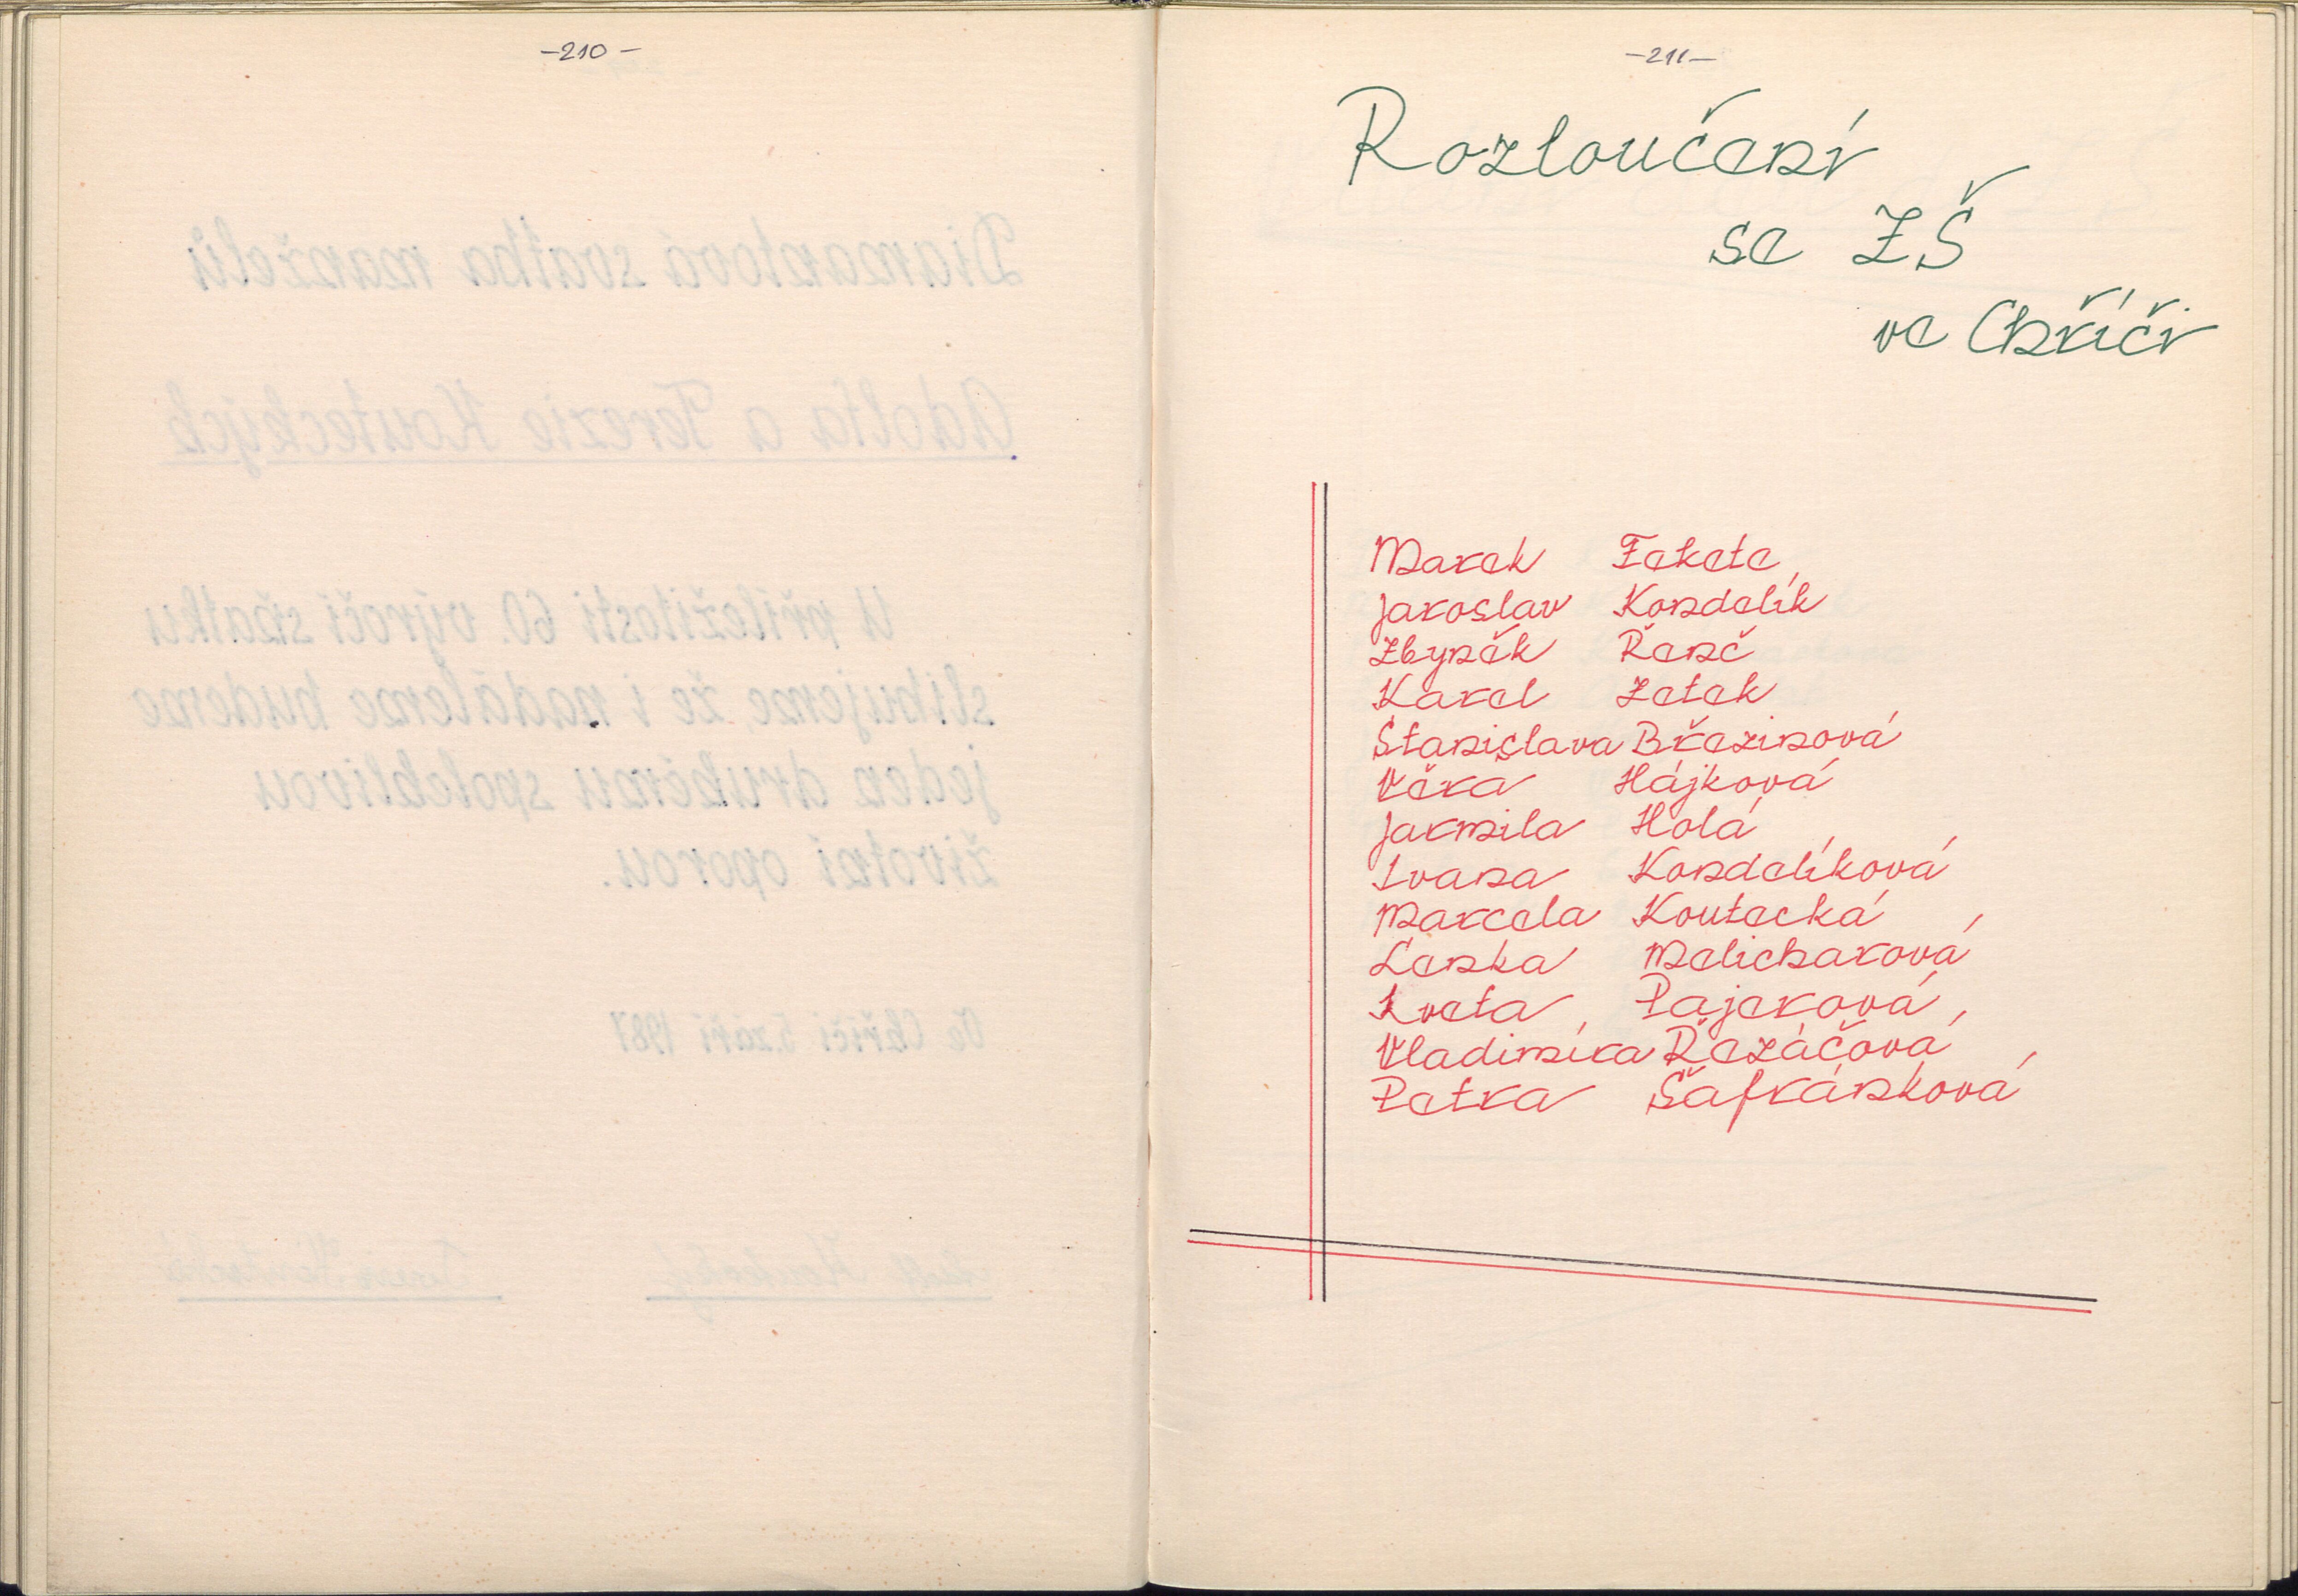 -210-
-211-
Rozloučení
se ZŠ
ve Chříči
Marek Fekete
Jaroslav Kondelík
Zbyněk Řenč
Karel Zetek
Stanislava Březinová
Věra Hájková
Jarmila Holá
Ivana Kondelíková
Marcela Koutecká
Lenka Melicharová
Iveta Pajerová
Vladimíra Řezáčová
Petra Šafránková